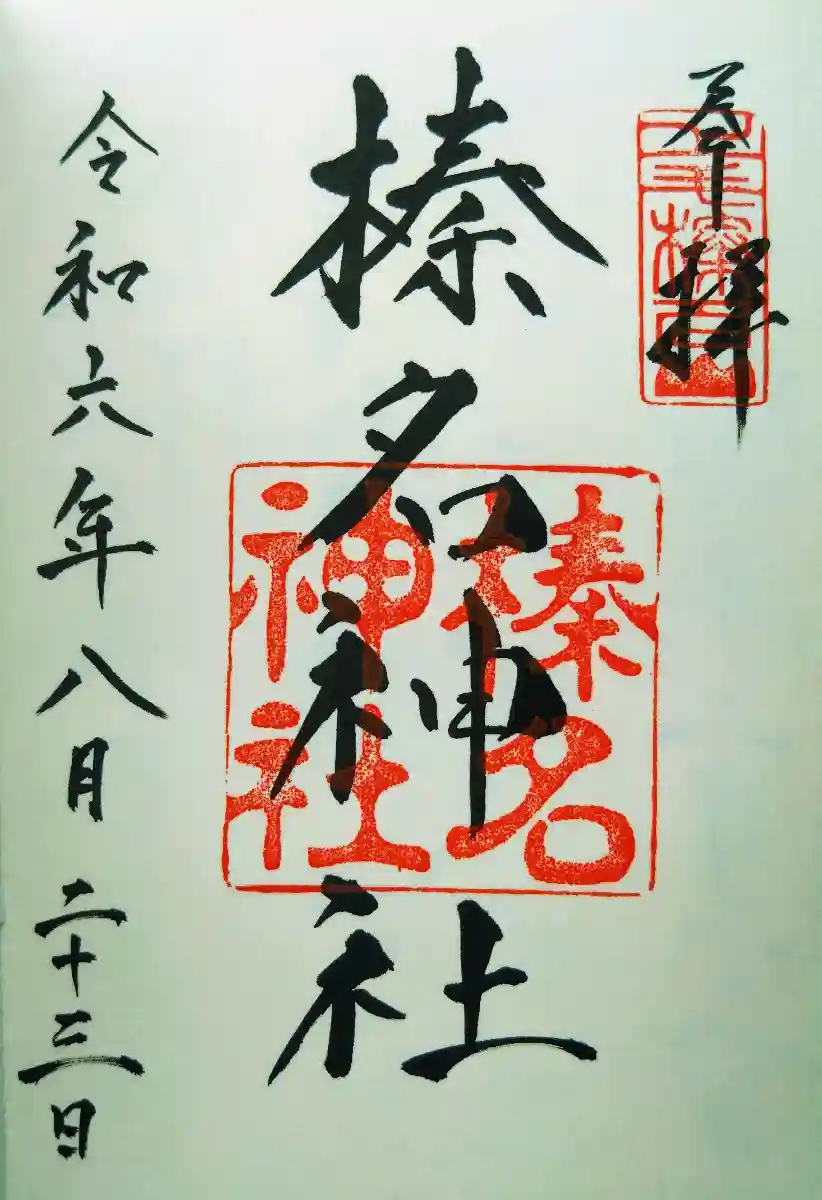 奉拝
榛名神社
榛名
神社
令和六年八月二十三日